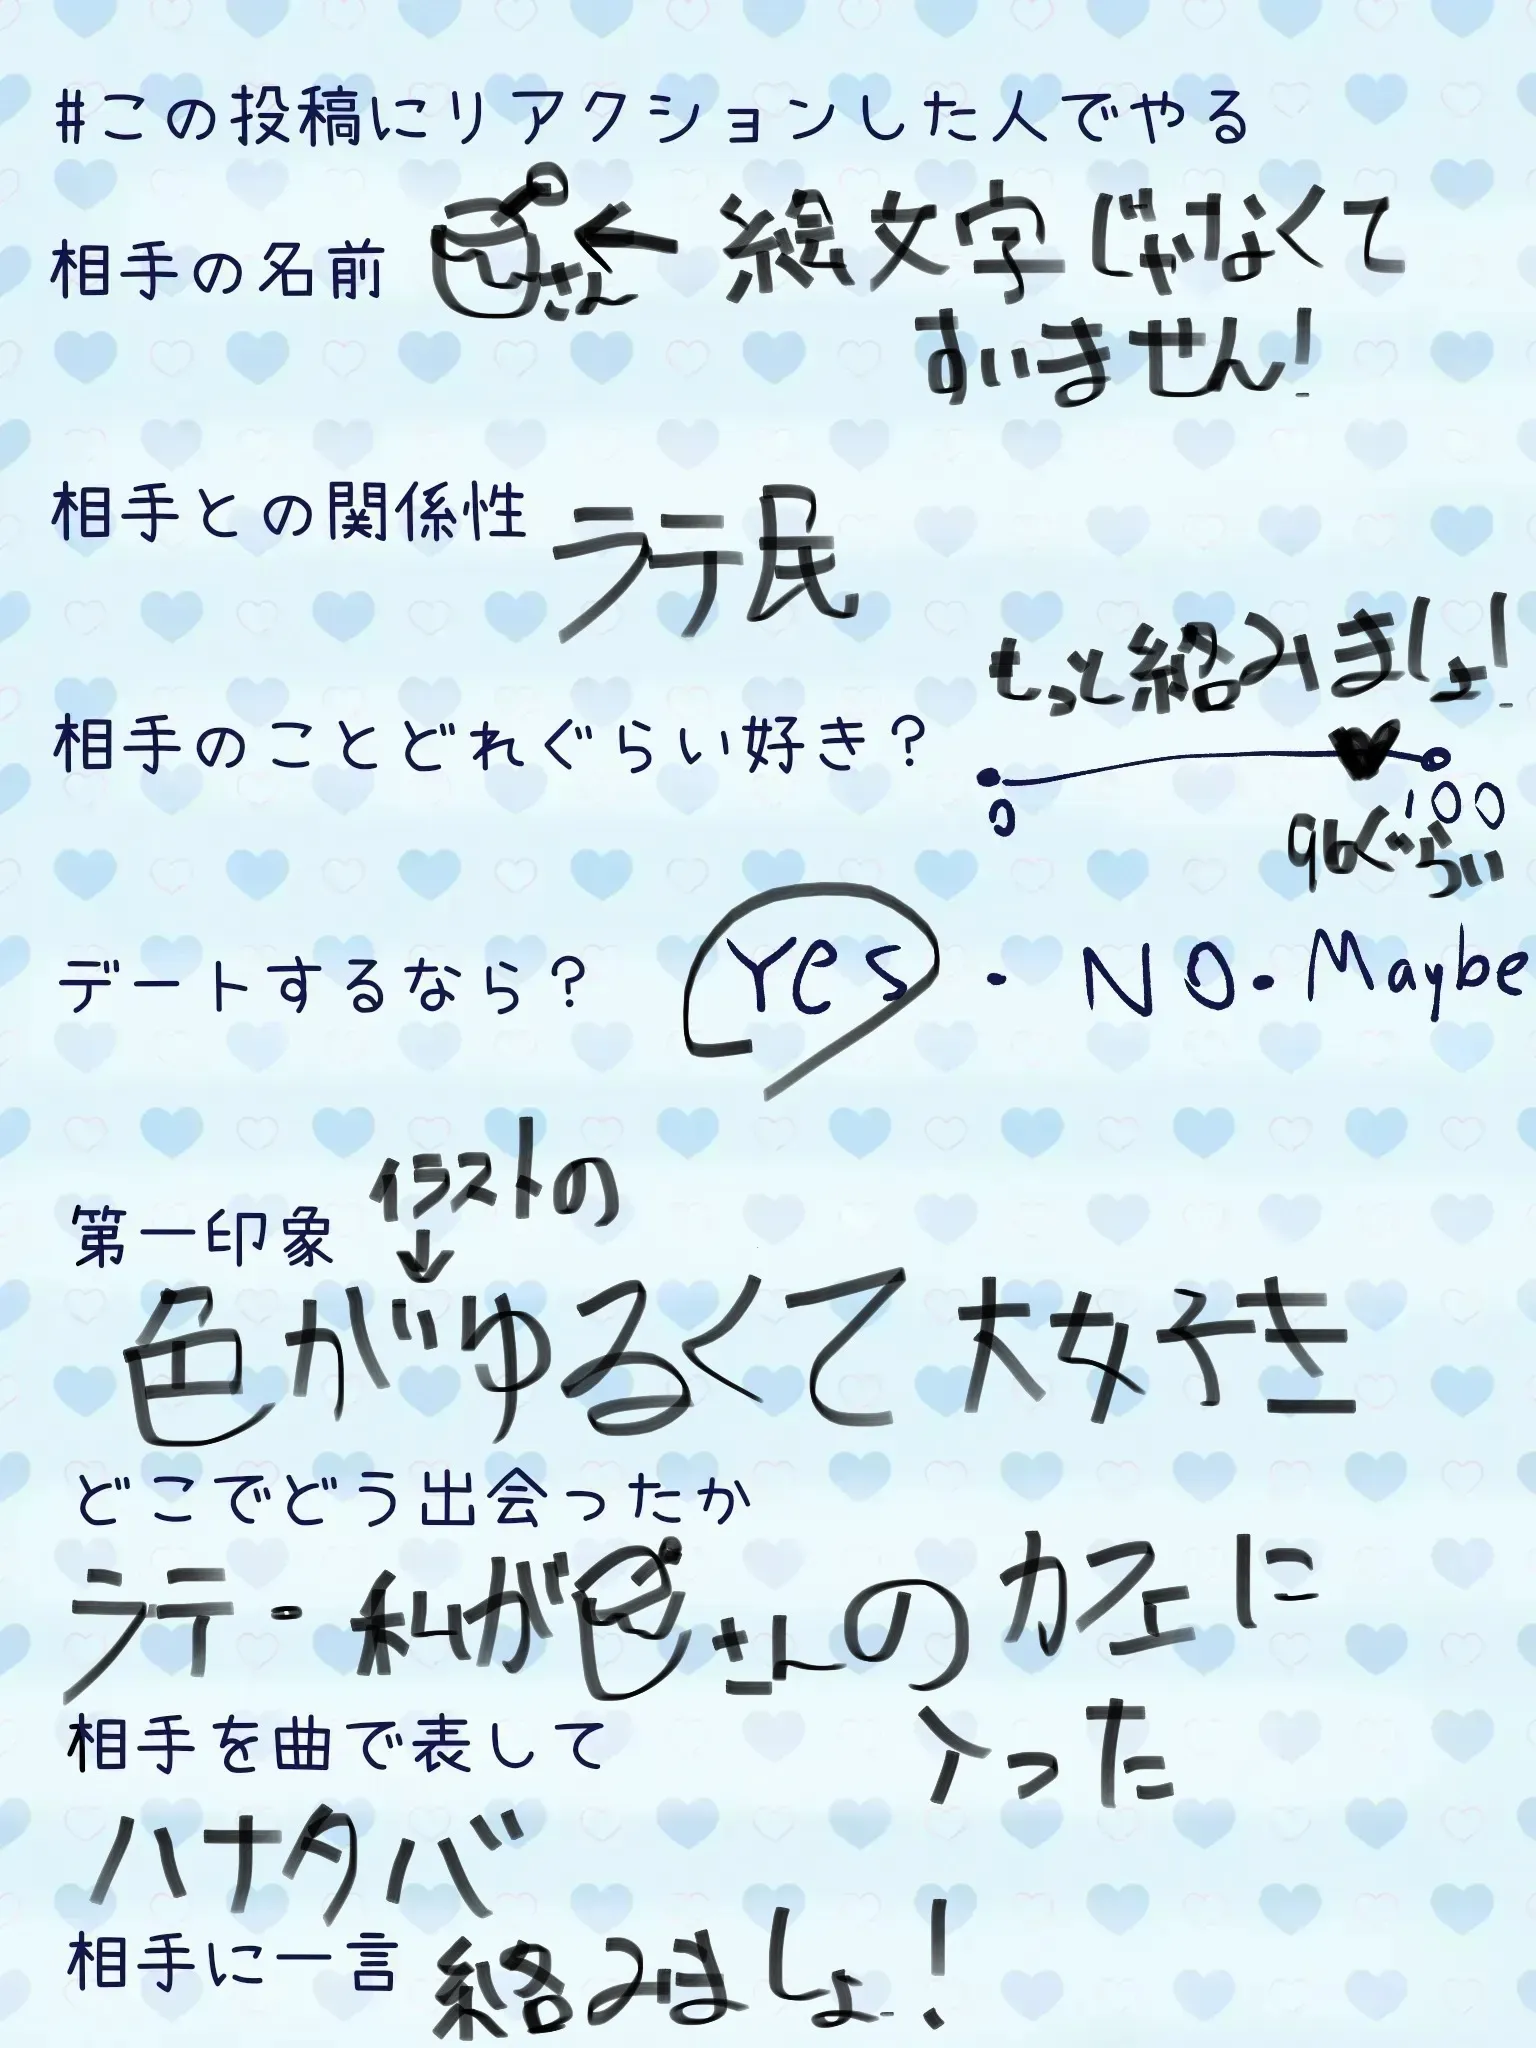 #この投稿にリアクションした人でやる
相手の名前 さん← 絵文字じゃなくて
すいません!
相手との関係性 ラテ民
もっと絡みましょ!
相手のことどれぐらい好き?
0 100
96ぐらい
デートするなら? Yes・NO・Maybe
イラストの
第一印象 ↓
色がゆるくて大好き
どこでどう出会ったか
ラテ・私が さんのカフェに
入った
相手を曲で表して
ハナタバ
相手に一言 絡みましょ!